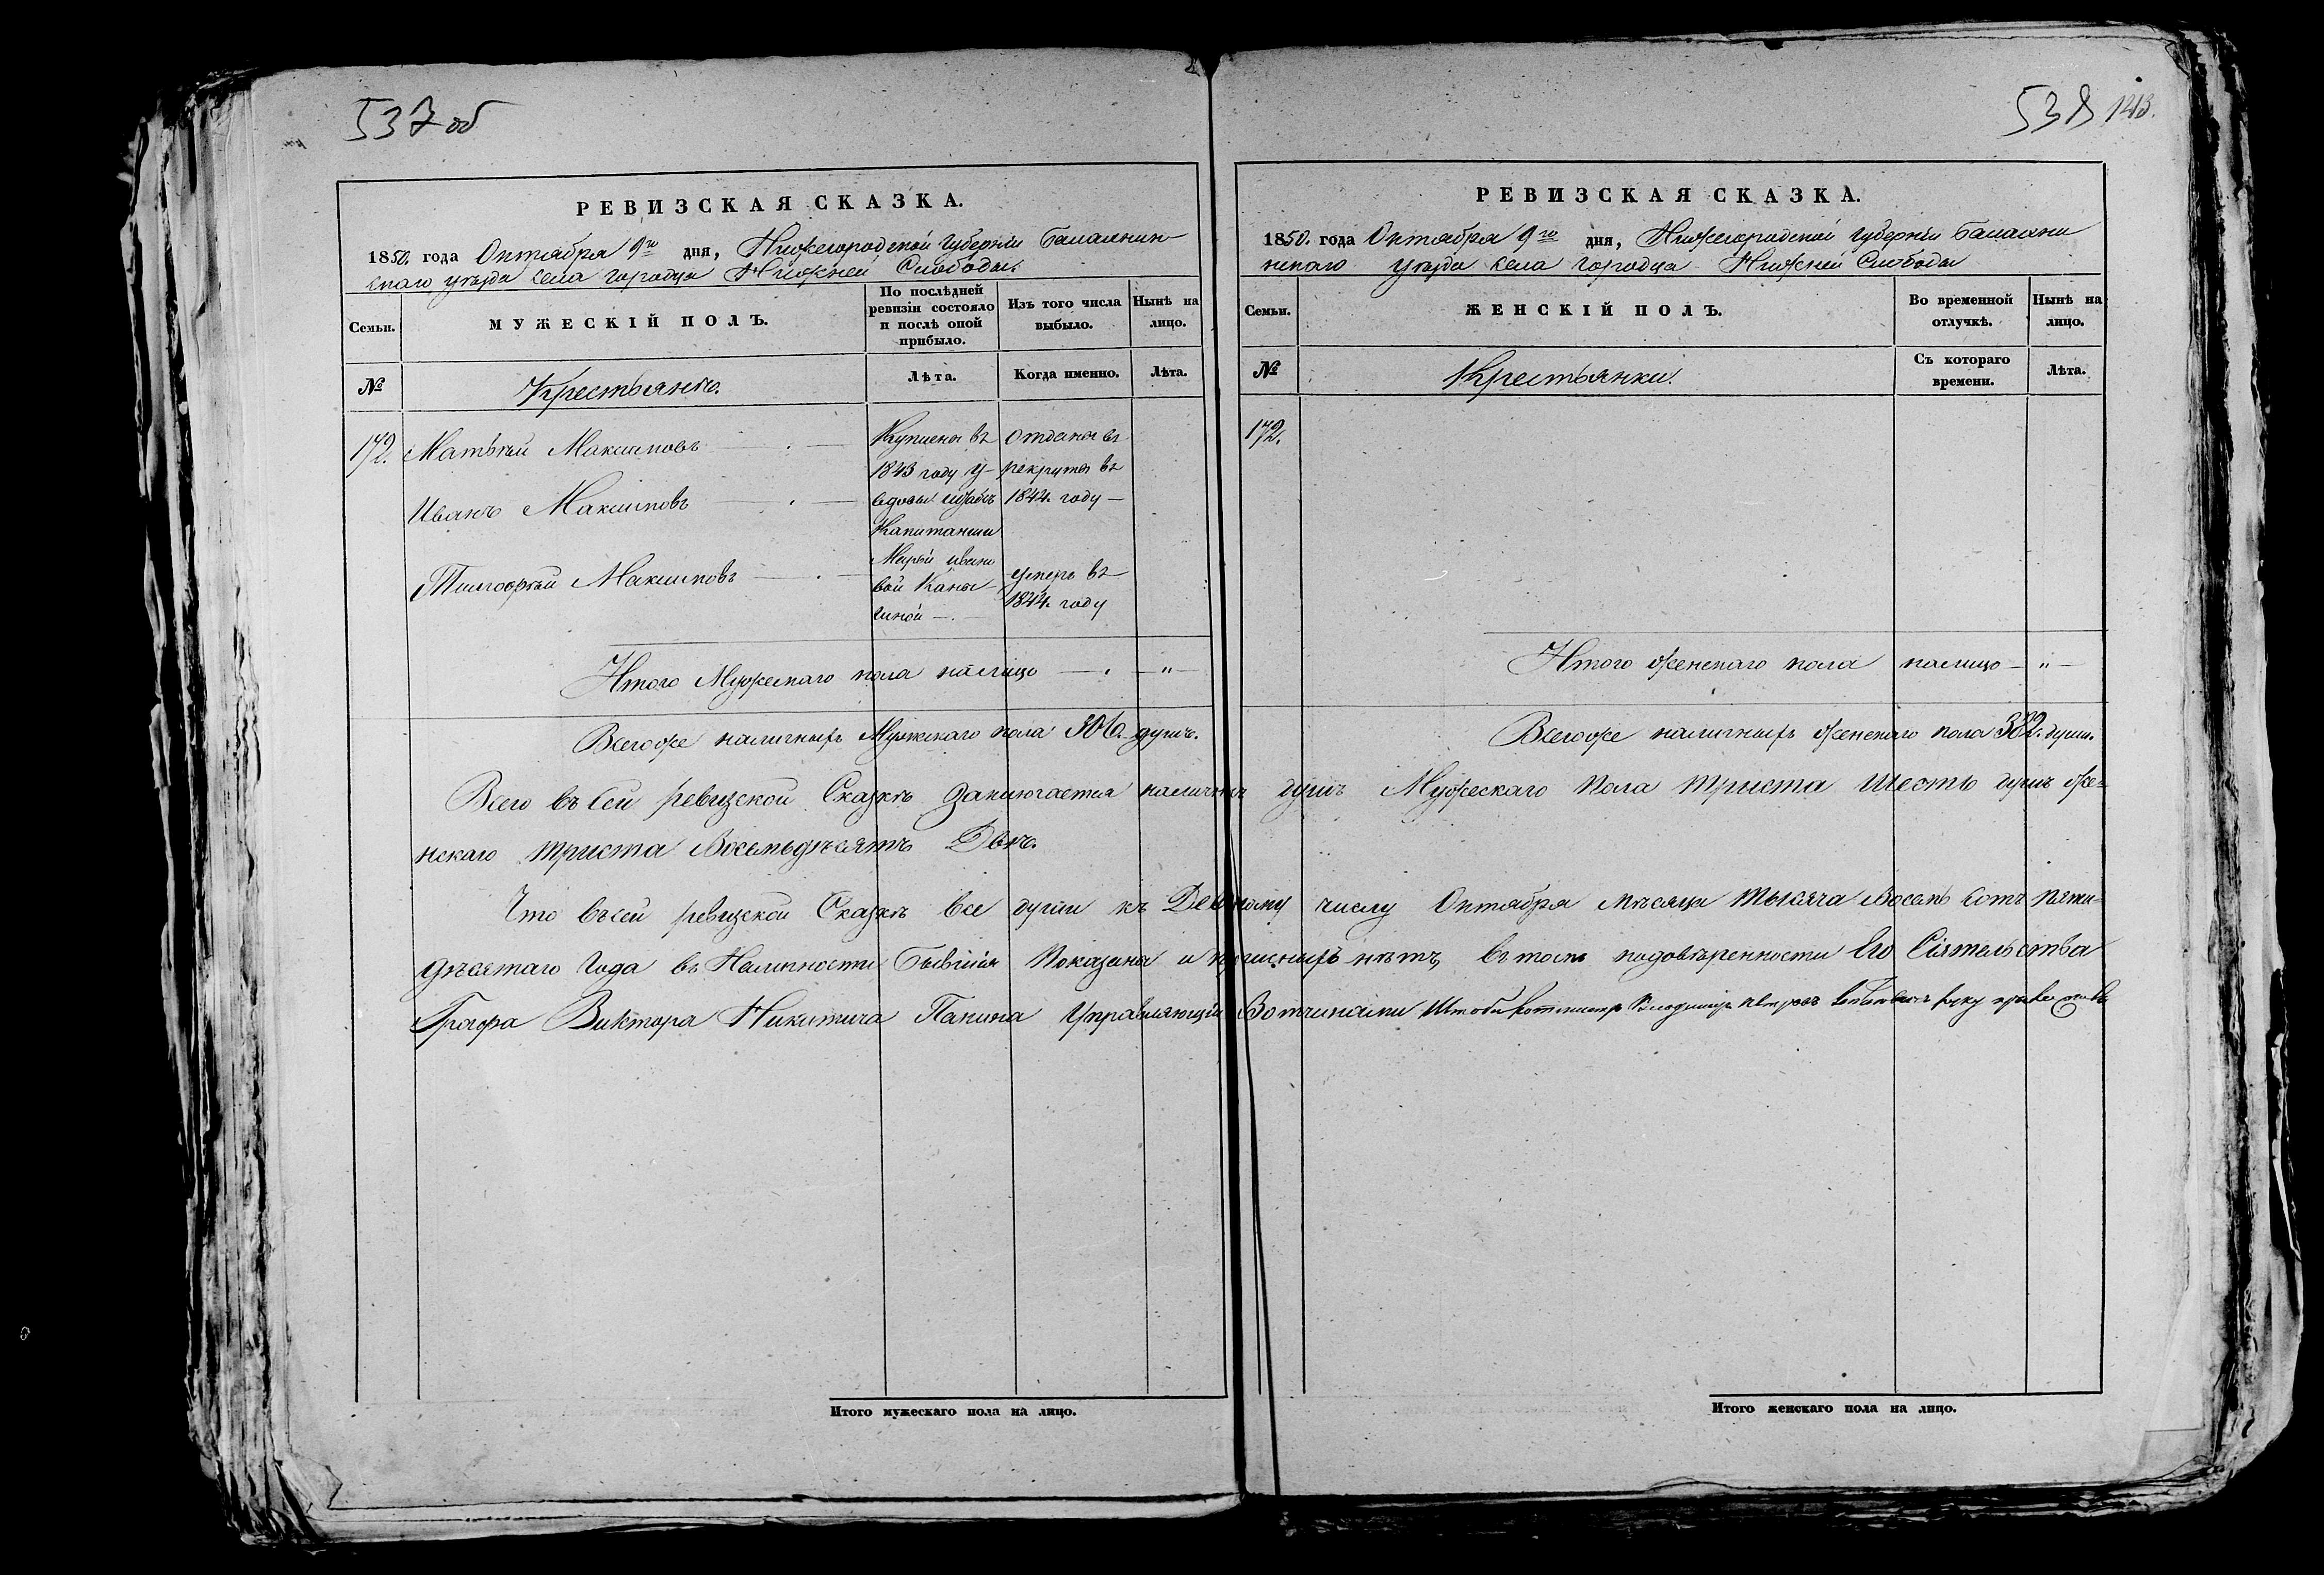 537 об
РЕВИЗСКАЯ СКАЗКА.
1850. года Октября 9го дня, Нижегородской Губерніи Балахнин-
скаго уѣзда села городца Нижней Слободы.
Семьи.
МУЖЕСКІЙ ПОЛЪ.
По послѣдней ревизіи состояло и послѣ оной прибыло.
Изъ того числа выбыло.
Нынѣ на лицо.
№
Крестьянъ.
Лѣта.
Когда именно.
Лѣта.
172.
Матвѣй Максимовъ
Иванъ Максимовъ
Тимофѣй Максимовъ
Куплены въ
1843 году у
вдовы штабсъ
Капитанши
Марьи Ивано
вой
отданы въ
рекруты въ
1844. году
умеръ въ
1844. году
Итого Мужескаго пола налицо — . — " —
Всегоже наличныхъ Мужскаго пола 306. душъ.
538 143.
РЕВИЗСКАЯ СКАЗКА.
1850. года Октября 9го дня, Нижегородской губерніи Балахни
нскаго уѣзда села городца Нижней Слободы
Семьи.
ЖЕНСКІЙ ПОЛЪ.
Во временной отлучкѣ.
Нынѣ на лицо.
№
Крестьянки.
Съ котораго времени.
Лѣта.
172.
Итого женскаго пола налицо — " —
Всегоже наличныхъ женскаго пола 382. души.
Всего въ сей ревизской Сказкѣ заключается наличныхъ душъ Мужескаго Пола Триста Шесть душъ же=
нскаго Триста Восемьдѣсятъ Двѣ.
Что въсей ревизской Сказкѣ все души къ Девятому числу Октября Мѣсяца Тысяча Восемь сотъ пяти-
дѣсятаго Года въ Наличности бывшія Показаны и прописныхъ нѣтъ, въ томъ подовѣренности Его Сіятельства
Графа Виктора Никитича Панина Управляющій Вотчинами Штабъ Ротмистръ Владимиръ Петровъ руку приложилъ
Итого мужескаго пола на лицо.
Итого женскаго пола на лицо.